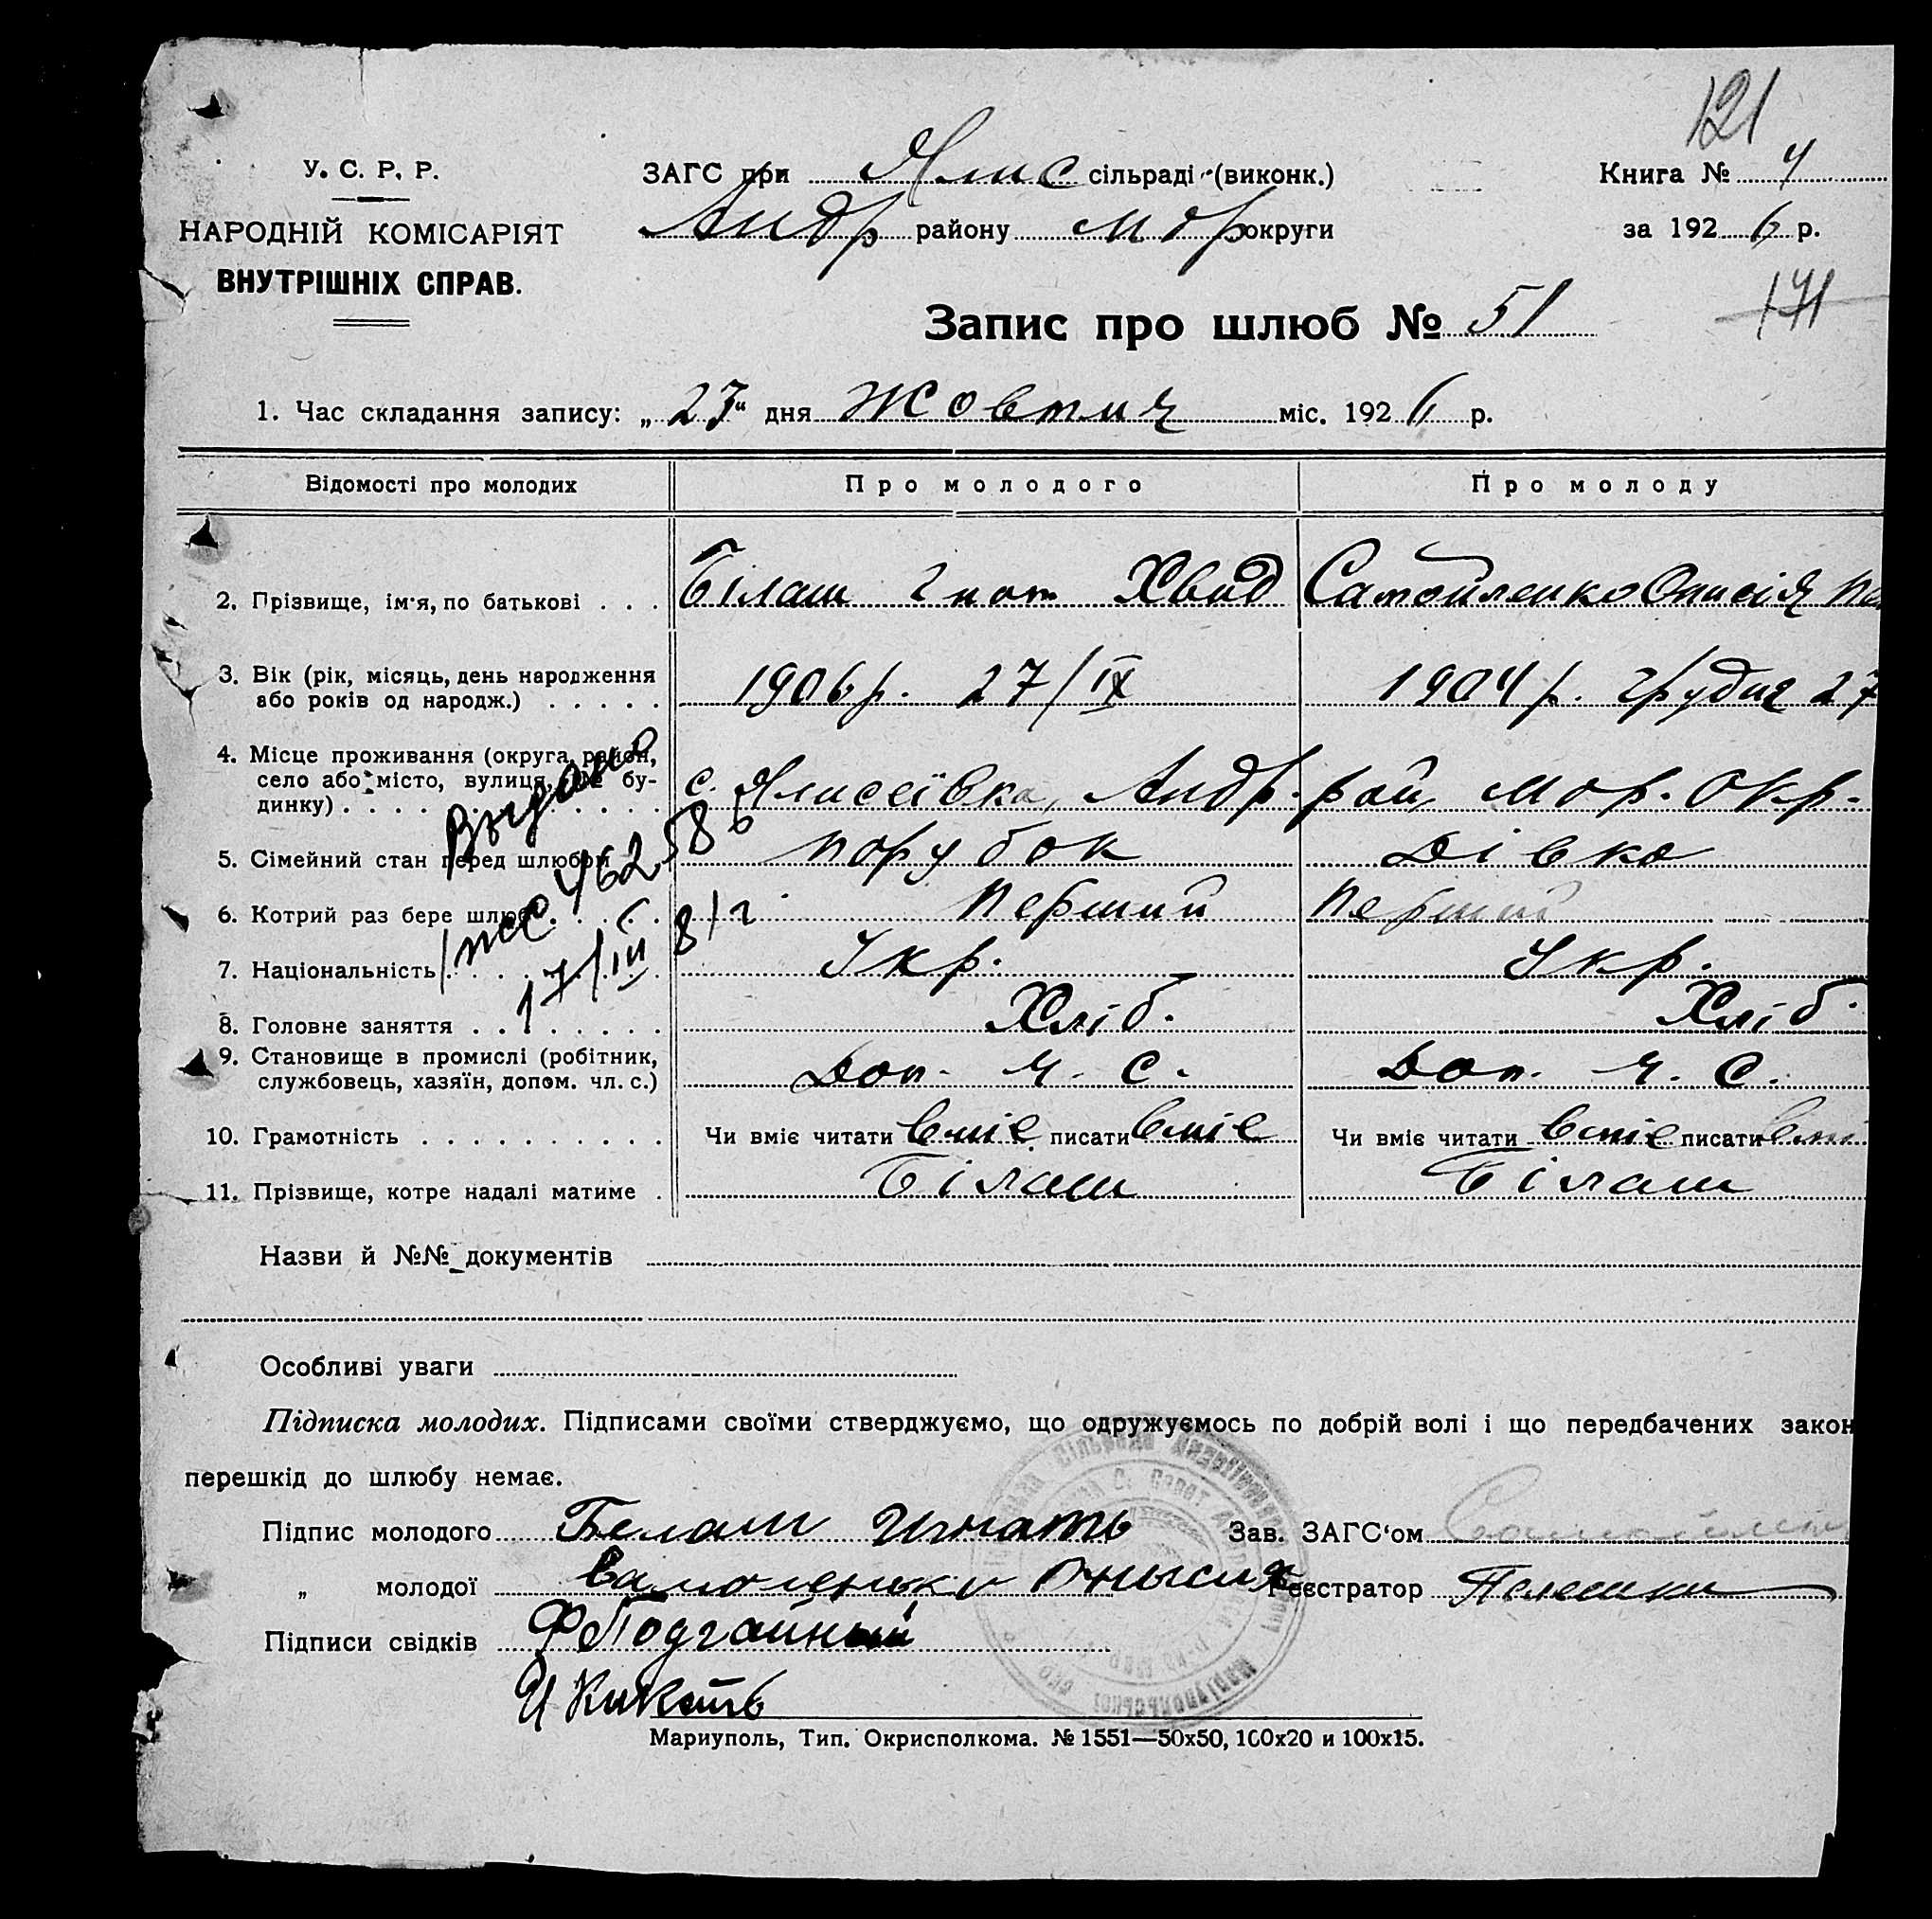 121
У. С. Р. Р.
НАРОДНІЙ КОМІСАРІЯТ
ВНУТРІШНІХ СПРАВ.
ЗАГС при Ялис сільраді (виконк.)
Андр району Мар округи
Книга № 4
за 1926 р.
171
Запис про шлюб № 51
1. Час складання запису: „27“ дня Жовтня міс. 1926 р.
Відомості про молодих
Про молодого
Про молоду
2. Прізвище, ім'я, по батькові . . .
Білаш Гнат Хвид
Самойленко Онисія
3. Вік (рік, місяць, день народження
або років од народж.) . . . . .
1906р. 27/IX
1904р. грудня 27
4. Місце проживання (округа, район,
село або місто, вулиця, № бу-
динку) . . . . . . . . . .
с. Ялисеївка, Андр. рай. Мар. Окр.
5. Сімейний стан перед шлюбом
порубок
Дівка
6. Котрий раз бере шлюб . . . .
Перший
Перший
7. Національність . . . . . . .
Укр.
Укр.
8. Головне заняття . . . . . . . .
Хліб.
Хліб.
9. Становище в промислі (робітник,
службовець, хазяїн, допом. чл. с.)
Доп. ч. с.
Доп. ч. с.
10. Грамотність . . . . . . . . . . .
Чи вміє читати вміє писати вміє
Чи вміє читати вміє писати вмі
11. Прізвище, котре надалі матиме .
Білаш
Білаш
Выдано
462586
17/III 81г
Назви й №№ документів
Особливі уваги
Підписка молодих. Підписами своїми стверджуємо, що одружуємось по добрій волі і що передбачених закон
перешкід до шлюбу немає.
Підпис молодого Белаш Игнать
Зав. ЗАГС‘ом
„ молодої
Реєстратор
Підписи свідків Ф Подгайный
И Кикоть
Мариуполь, Тип. Окрисполкома. № 1551—50х50, 100х20 и 100х15.